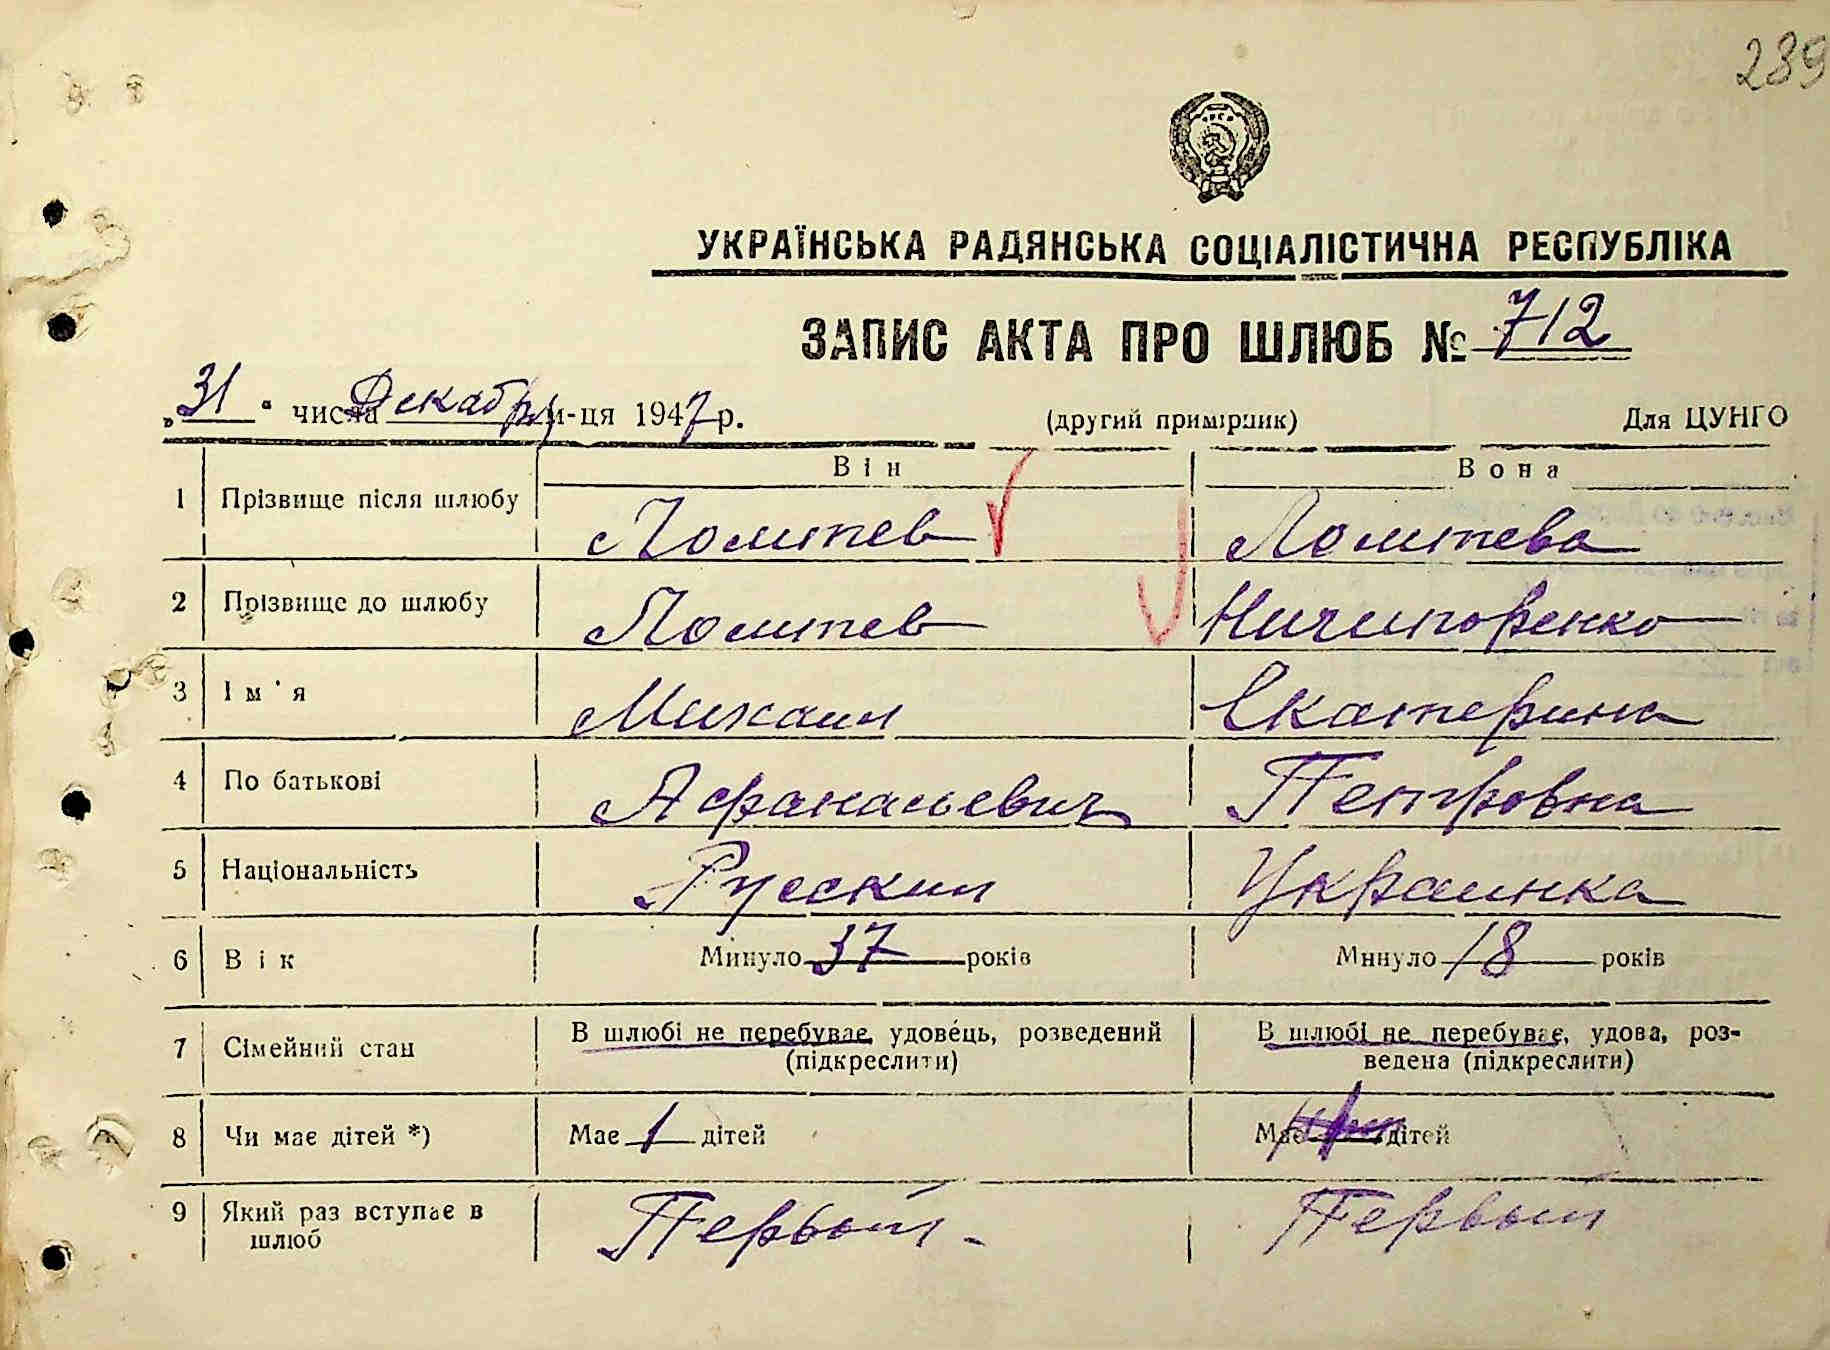 289
УКРАЇНСЬКА РАДЯНСЬКА СОЦІАЛІСТИЧНА РЕСПУБЛІКА
ЗАПИС АКТА ПРО ШЛЮБ № 712
„31“ числа Декабря м-ця 1947 р. (другий примірник) Для ЦУНГО
Він Вона
1 Прізвище після шлюбу Ломтев Ломтева
2 Прізвище до шлюбу Ломтев Ничипоренко
3 Ім'я Михаил Екатерина
4 По батькові Афанасьевич Петровна
5 Національність Русский Украинка
6 Вік Минуло 37 років Минуло 18 років
7 Сімейний стан В шлюбі не перебуває, удовець, розведений В шлюбі не перебуває, удова, роз-
(підкреслити) ведена (підкреслити)
8 Чи має дітей *) Має 1 дітей Має дітей
9 Який раз вступає в Первый - Первый
шлюб